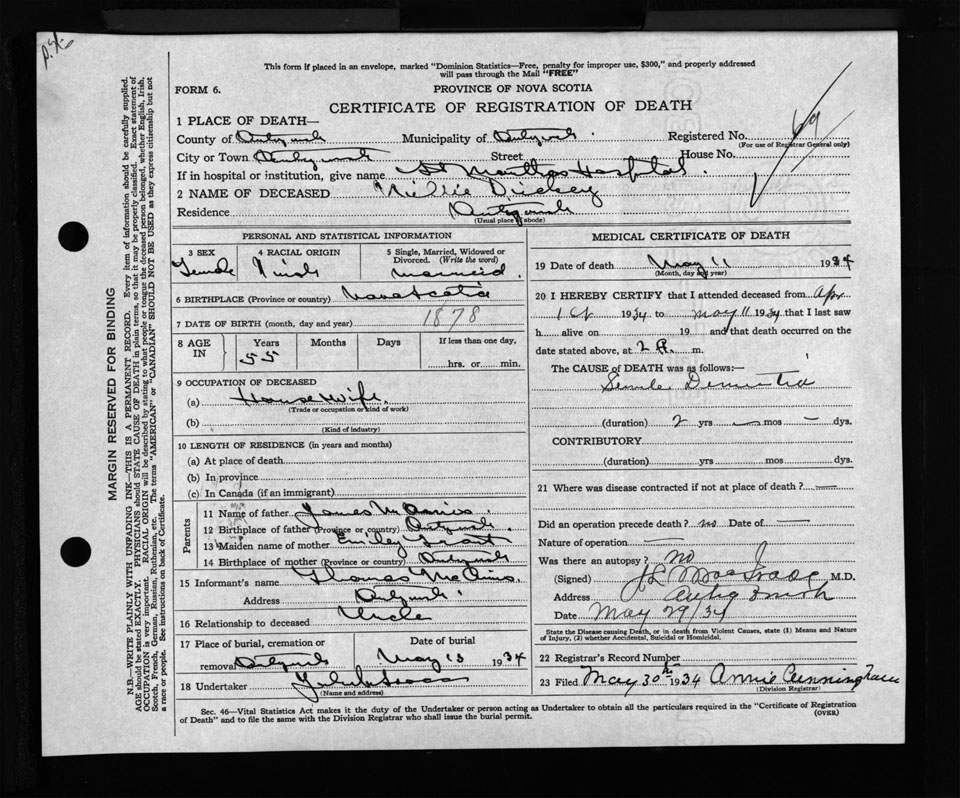 This form if placed in an envelope, marked "Dominion Statistics—Free, penalty for improper use, $300," and properly addressed
will pass through the Mail "FREE"
FORM 6.
PROVINCE OF NOVA SCOTIA
CERTIFICATE OF REGISTRATION OF DEATH
1 PLACE OF DEATH—
County of Antigonish Municipality of Antigonish Registered No.
(For use of Registrar General only)
City or Town Antigonish Street House No.
If in hospital or institution, give name St Marthas Hospital.
2 NAME OF DECEASED Millie Dickey
Residence Antigonish
(Usual place of abode)
PERSONAL AND STATISTICAL INFORMATION
3 SEX 4 RACIAL ORIGIN 5 Single, Married, Widowed or
Divorced. (Write the word)
Female married.
6 BIRTHPLACE (Province or country) Nova Scotia
7 DATE OF BIRTH (month, day and year) 1878
8 AGE IN Years Months Days If less than one day,
55 hrs. or min.
9 OCCUPATION OF DECEASED
(a) House Wife.
(Trade or occupation or kind of work)
(b)
(Kind of industry)
10 LENGTH OF RESIDENCE (in years and months)
(a) At place of death
(b) In province
(c) In Canada (if an immigrant)
Parents
11 Name of father James
12 Birthplace of father (Province or country) Antigonish.
13 Maiden name of mother Emiley
14 Birthplace of mother (Province or country) Antigonish
15 Informant's name Thomas
Address Antigonish
16 Relationship to deceased Uncle
17 Place of burial, cremation or Date of burial
removal Antigonish May 13 1934
18 Undertaker
(Name and address)
MEDICAL CERTIFICATE OF DEATH
19 Date of death May 11 1934
(Month, day and year)
20 I HEREBY CERTIFY that I attended deceased from Apr
1st 1934 to May 11 1934 that I last saw
h alive on 19 and that death occurred on
date stated above, at 2 P. m.
The CAUSE OF DEATH was as follows:—
Senile Dementia
(duration) 2 yrs — mos — dys.
CONTRIBUTORY
(duration) yrs mos dys.
21 Where was disease contracted if not at place of death? —
Did an operation precede death? no Date of —
Nature of operation —
Was there an autopsy? no
(Signed) M.D.
Address Antigonish
Date May 29/34
State the Disease causing Death, or in death from Violent Causes, state (1) Means and Nature
of Injury, (2) whether Accidental, Suicidal or Homicidal.
22 Registrar's Record Number
23 Filed May 30th 1934 Annie Cunningham
(Division Registrar)
Sec. 46—Vital Statistics Act makes it the duty of the Undertaker or person acting as Undertaker to obtain all the particulars required in the "Certificate of Registration
of Death" and to file the same with the Division Registrar who shall issue the burial permit.
(OVER)
MARGIN RESERVED FOR BINDING
N.B.—WRITE PLAINLY WITH UNFADING INK—THIS IS A PERMANENT RECORD. Every item of information should be carefully supplied.
AGE should be stated EXACTLY. PHYSICIANS should STATE CAUSE OF DEATH in plain terms, so that it may be properly classified. Exact statement of
OCCUPATION is very important. RACIAL ORIGIN will be described by stating to what people or tongue the deceased person belonged, whether English, Irish,
Scotch, French, German, Russian, Ruthenian, etc. The terms "AMERICAN" or "CANADIAN" SHOULD NOT BE USED as they express citizenship but not
a race or people. See instructions on back of Certificate.